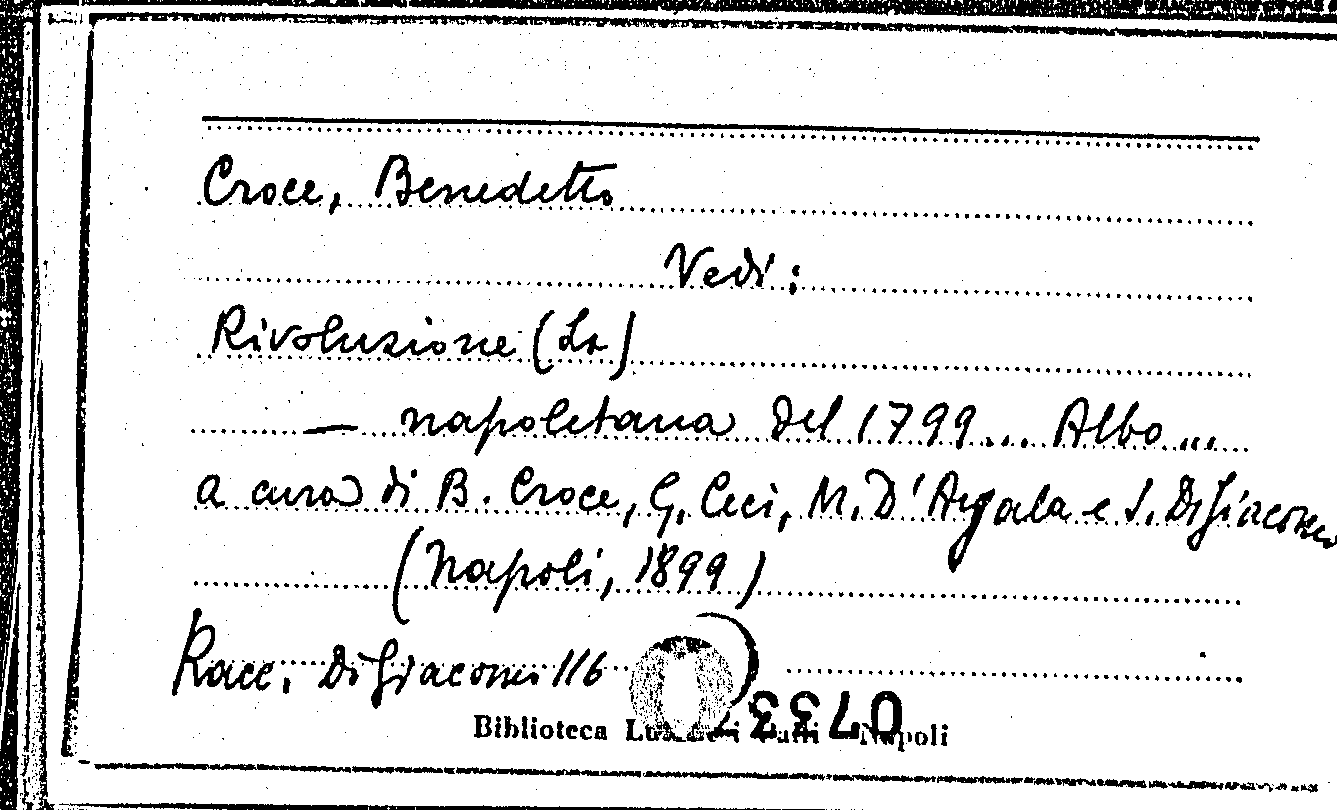 Croce, Benedetto
Vedi:
Rivoluzione (La)
— napoletana del 1799... Albo...
a cura di B. Croce, G. Ceci, M. D'Ayala e S. Di Giacomo
(Napoli, 1899)
Racc. Di Giacomo 116
Biblioteca Napoli